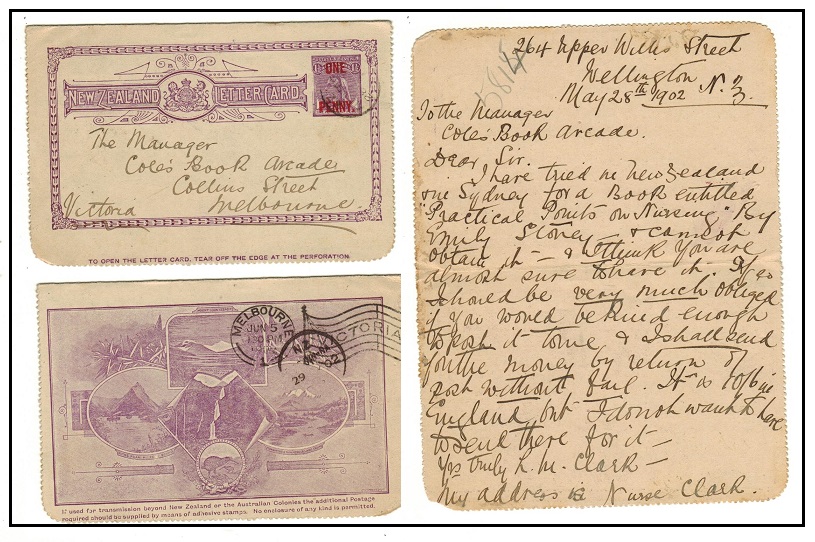 ONE
PENNY.
NEW ZEALAND LETTER CARD
The Manager
Cole's Book Arcade
Collins Street
Melbourne
Victoria
TO OPEN THE LETTER CARD, TEAR OFF THE EDGE AT THE PERFORATION.
MELBOURNE
JUN 5
VICTORIA
29
If used for transmission beyond New Zealand or the Australian Colonies the additional Postage
required should be supplied by means of adhesive stamps. No enclosure of any kind is permitted.
264 Upper Willis Street
Wellington
N.Z.
May 28th 1902
To the Manager
Cole's Book Arcade.
Dear Sir.
I have tried in new Zealand
one Sydney for a Book entitled
"Practical Points on Nursing" By
Emily Stoney & cannot
obtain it — & I think you are
almost sure to have it. If so
I should be very much obliged
if you would be kind enough
to post it to me & I shall send
you the money by return of
post without fail. It is 10/6 in
England but I do not want to have
to send there for it —
Yrs truly R. M. Clark —
My address is Nurse Clark.